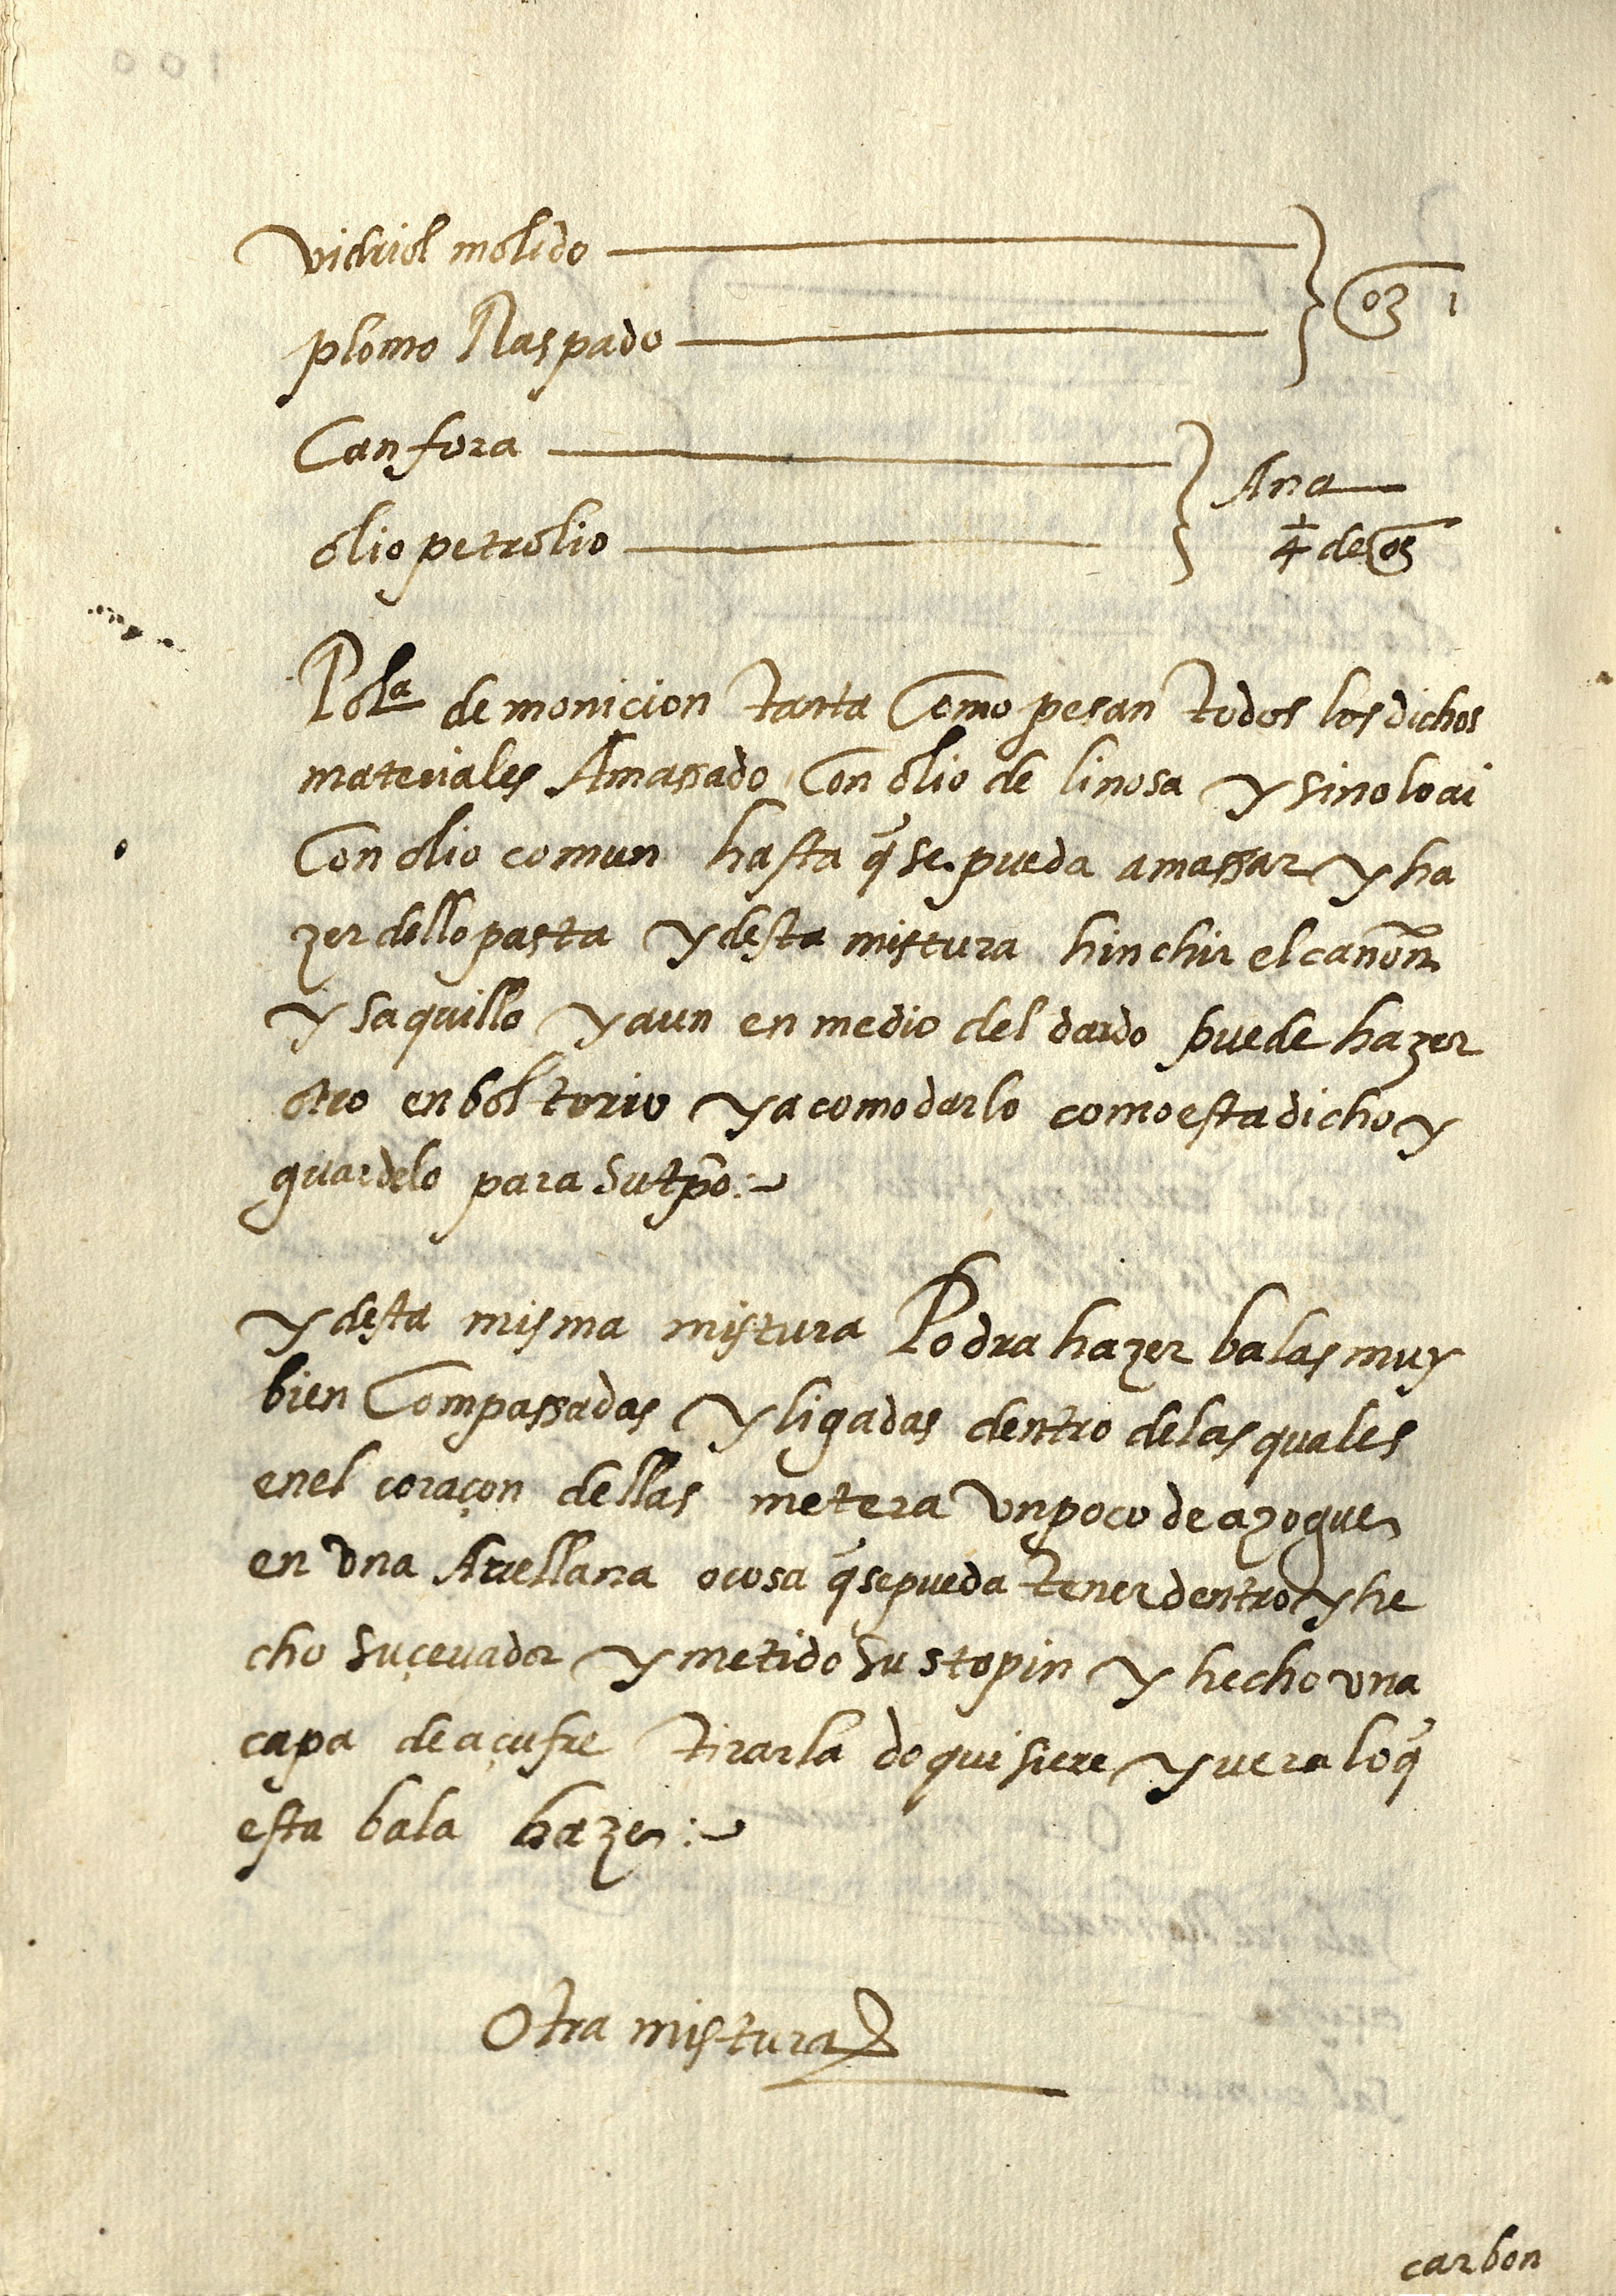 vidriol molido } oz 1
plomo Raspado
Canfora } Ana
olio petrolio ¼ de oz
Polª de monicion tanta Como pesan todos los dichos
materiales Amassado Con olio de linosa y si no lo ai
Con olio comun hasta q̃ se pueda amassar y ha
zer dello pasta y desta mistura hinchir el canõn
y saquillo y aun en medio del dardo puede hazer
otro enboltorio y acomodarlo como esta dicho y
guardelo para su tp̃o:~
y desta misma mistura Podra hazer balas muy
bien Compassadas y ligadas dentro de las quales
en el coraçon dellas metera vn poco de azogue
en vna Auellana o cosa q̃ se pueda tener dentro y he
cho su çeuador y metido su stopin y hecho vna
capa de açufre tirarla do quisiere y uera lo q̃
esta bala haze:~
Otra mistura
carbon